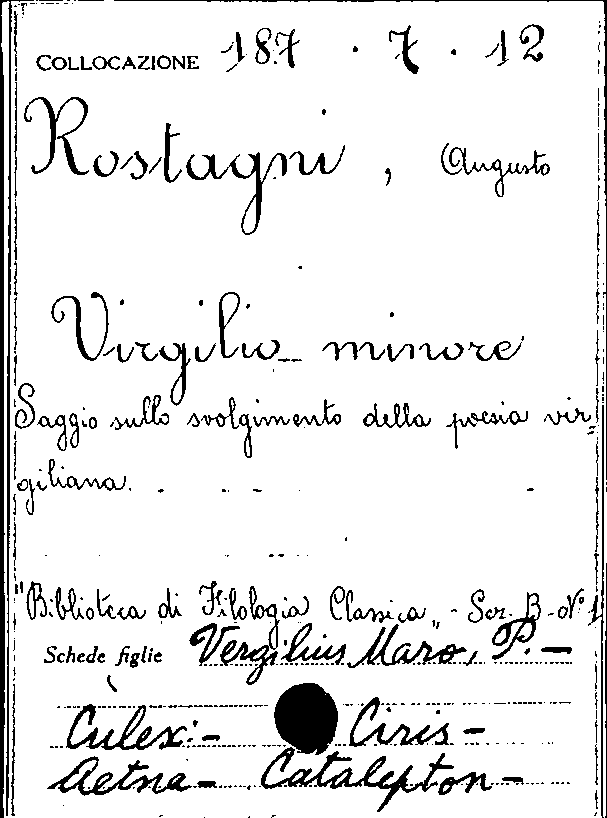 COLLOCAZIONE 187 . 7 . 12
Rostagni, Augusto
Virgilio minore
Saggio sullo svolgimento della poesia vir=
giliana.
"Biblioteca di Filologia Classica" - Ser. B - N° 1
Schede figlie Vergilius Maro, P. -
Culex: - Ciris -
Aetna - Catalepton -